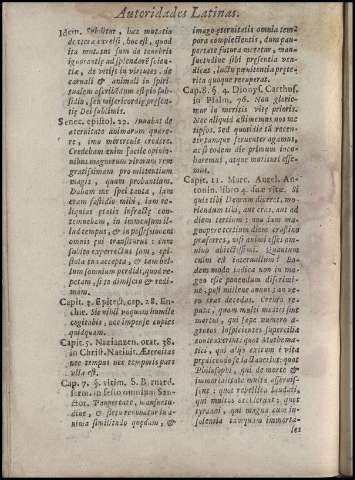 Autoridades Latinas.
Idem. subditur, hæc mutatio
dextera excelsi, hoc est, quod
ita mutatus sum de tenebris
ignorantiæ ad splendorē scien-
tiæ, de vitijs in virtutes, de
carnali & animali in spiri-
tualem ascribēdum est pio sub-
sidio, seu misericordiæ præsen-
tiæ Dei sublimis.
Senec. epistol. 22. Iuuabat de
æternitate animarum quære-
re, imo me hercule credere.
Credebam enim facile opinio-
nibus magnorum virorum rem
gratissimam pro mittentium
magis, quam probantium.
Dabam me spei tantæ, iam
eram fastidio mihi, iam re-
liquias ætatis infractæ con-
temnebam, in immensum il-
lud tempus, & in possessionem
omnis æui transiturus: cum
subito experrectus sum, epi-
stola tua accepta, & tam bel-
lum somnium perdidi, quod re-
petam, si te dimisero & redi-
mam.
Capit. 3. Epitect. cap. 28. En-
chir. Sic nihil vnquam humile
cogitabis, nec impense cupies
quidquam.
Capit. 5. Nazianzen. orat. 38.
in Christi Natiuit. Æternitas
nec tempus nec temporis pars
vlla est.
Cap. 7. §. vltim. S. Bernard.
serm. in festo omnium San-
ctor. Paupertate, mansuetu-
dine, & fletu renouatur in a-
nima similitudo quædam, &
imago æternitatis omnia tem-
pora complectentis, dum pau-
pertate futura meretur, man-
suetudine sibi præsentia ven-
dicat, luctu pœnitentiæ præte-
rita quoque recuperat.
Cap. 8. §. 4. Dionys. Carthus.
in Psalm. 76. Non glorie-
mur in meritis vitæ prioris.
Nec aliquid æstimemus nos me-
ruisse. Sed quotidie ad æterni-
tatem feruenter agamus,
ac si eodem die primum inchoa-
remus, atque morituri esse-
mus.
Capit. 11. Marc. Aurel. An-
tonin. libro 4. suæ vitæ. Si
quis tibi Deorum diceret, mo-
riendum tibi, aut cras, aut ad
diem tertium: non tam ma-
gnopere tertium diem crastino
præferres, nisi animi esses om-
nino abiectissimi. Quantulum
enim est interuallum? Eo-
dem modo indica non in ma-
gno esse ponendum discrimi-
ne, post millene annos, an ve-
ro cras decedas. Crebro re-
puta, quam multi medici sint
mortui, qui sæpe numero æ-
grotos inspicientes supercilia
contraxerint: quot Mathema-
tici, qui alijs exitum è vita
prædixisse se iactarint: quot
Philosophi, qui de morte &
immortalitate multa asseruis-
sent: quot rebellica laudati,
qui multos occiderant: quot
tyranni, qui magna cum in-
solentia, tanquam immorta-
les